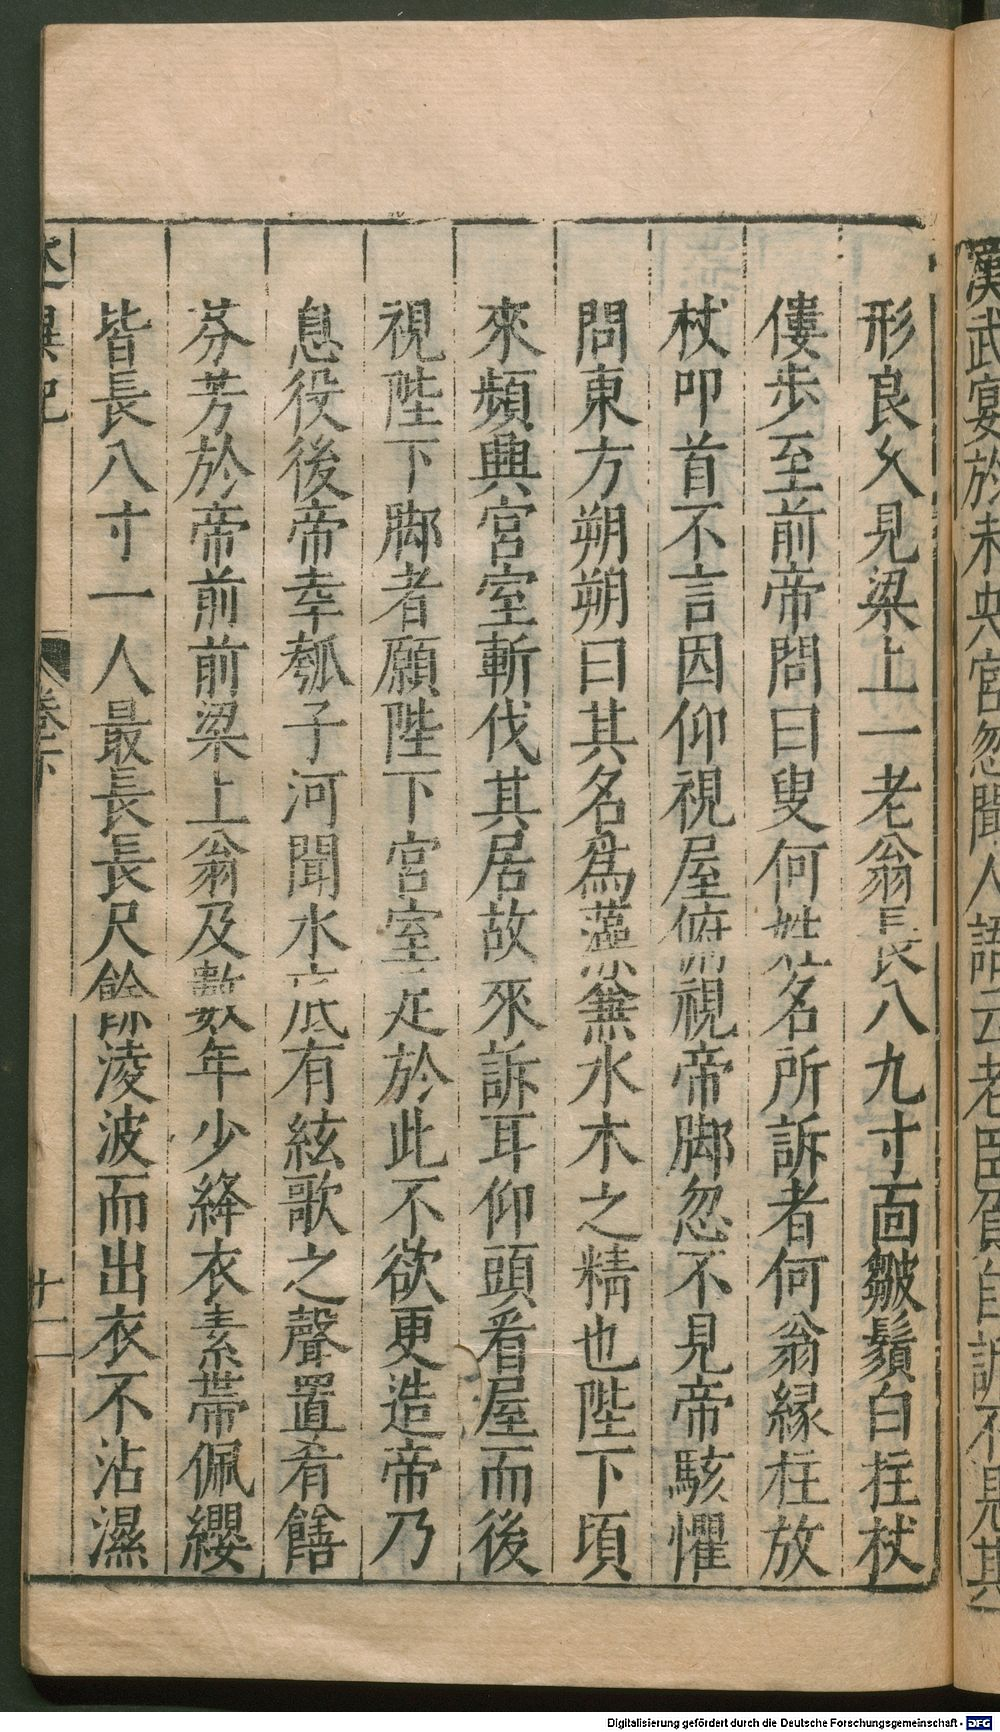 漢武宴於未央宮忽聞人語云老臣負自訴不見其
形良久見梁上一老翁長八九寸面皺鬚白拄杖
僂步至前帝問曰叟何姓名所訴者何翁縁柱放
杖叩首不言因仰視屋俯視帝脚忽不見帝駭懼
問東方朔朔曰其名為藻兼水木之精也陛下頃
來頻興宮室斬伐其居故來訴耳仰頭看屋而後
視陛下脚者願陛下宮室足於此不欲更造帝乃
息役後帝幸瓠子河聞水底有絃歌之聲置肴饍
芬芳於帝前前梁上翁及數年少絳衣素帶佩纓
皆長八寸一人最長長尺餘淩波而出衣不沾濕
述異記 卷下 十二
Digitalisierung gefördert durch die Deutsche Forschungsgemeinschaft - DFG